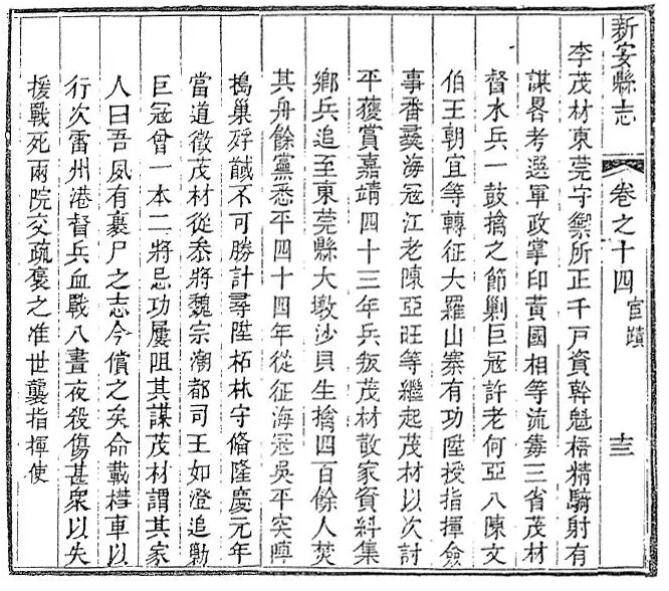 新安縣志 卷之十四 宦蹟 十三
李茂材東莞守禦所正千戶資幹魁梧精騎射有
謀畧考選軍政掌印黃國相等流毒三省茂材
督水兵一鼓擒之節剿巨寇許老何亞八陳文
伯王朝宜等轉征大羅山寨有功陞授指揮僉
事番彞海寇江老陳亞旺等繼起茂材以次討
平獲賞嘉靖四十三年兵叛茂材散家資糾集
鄉兵追至東莞縣大墩沙貝生擒四百餘人焚
其舟餘黨悉平四十四年從征海寇吳平突陣
搗巢殍馘不可勝計尋陞柘林守備隆慶元年
當道徵茂材從叅將魏宗潮都司王如澄追勦
巨寇曾一本二將忌功屢阻其謀茂材謂其家
人曰吾夙有裹尸之志今償之矣命載櫬車以
行次雷州港督兵血戰八晝夜殺傷甚衆以失
援戰死兩院交疏褒之准世襲指揮使